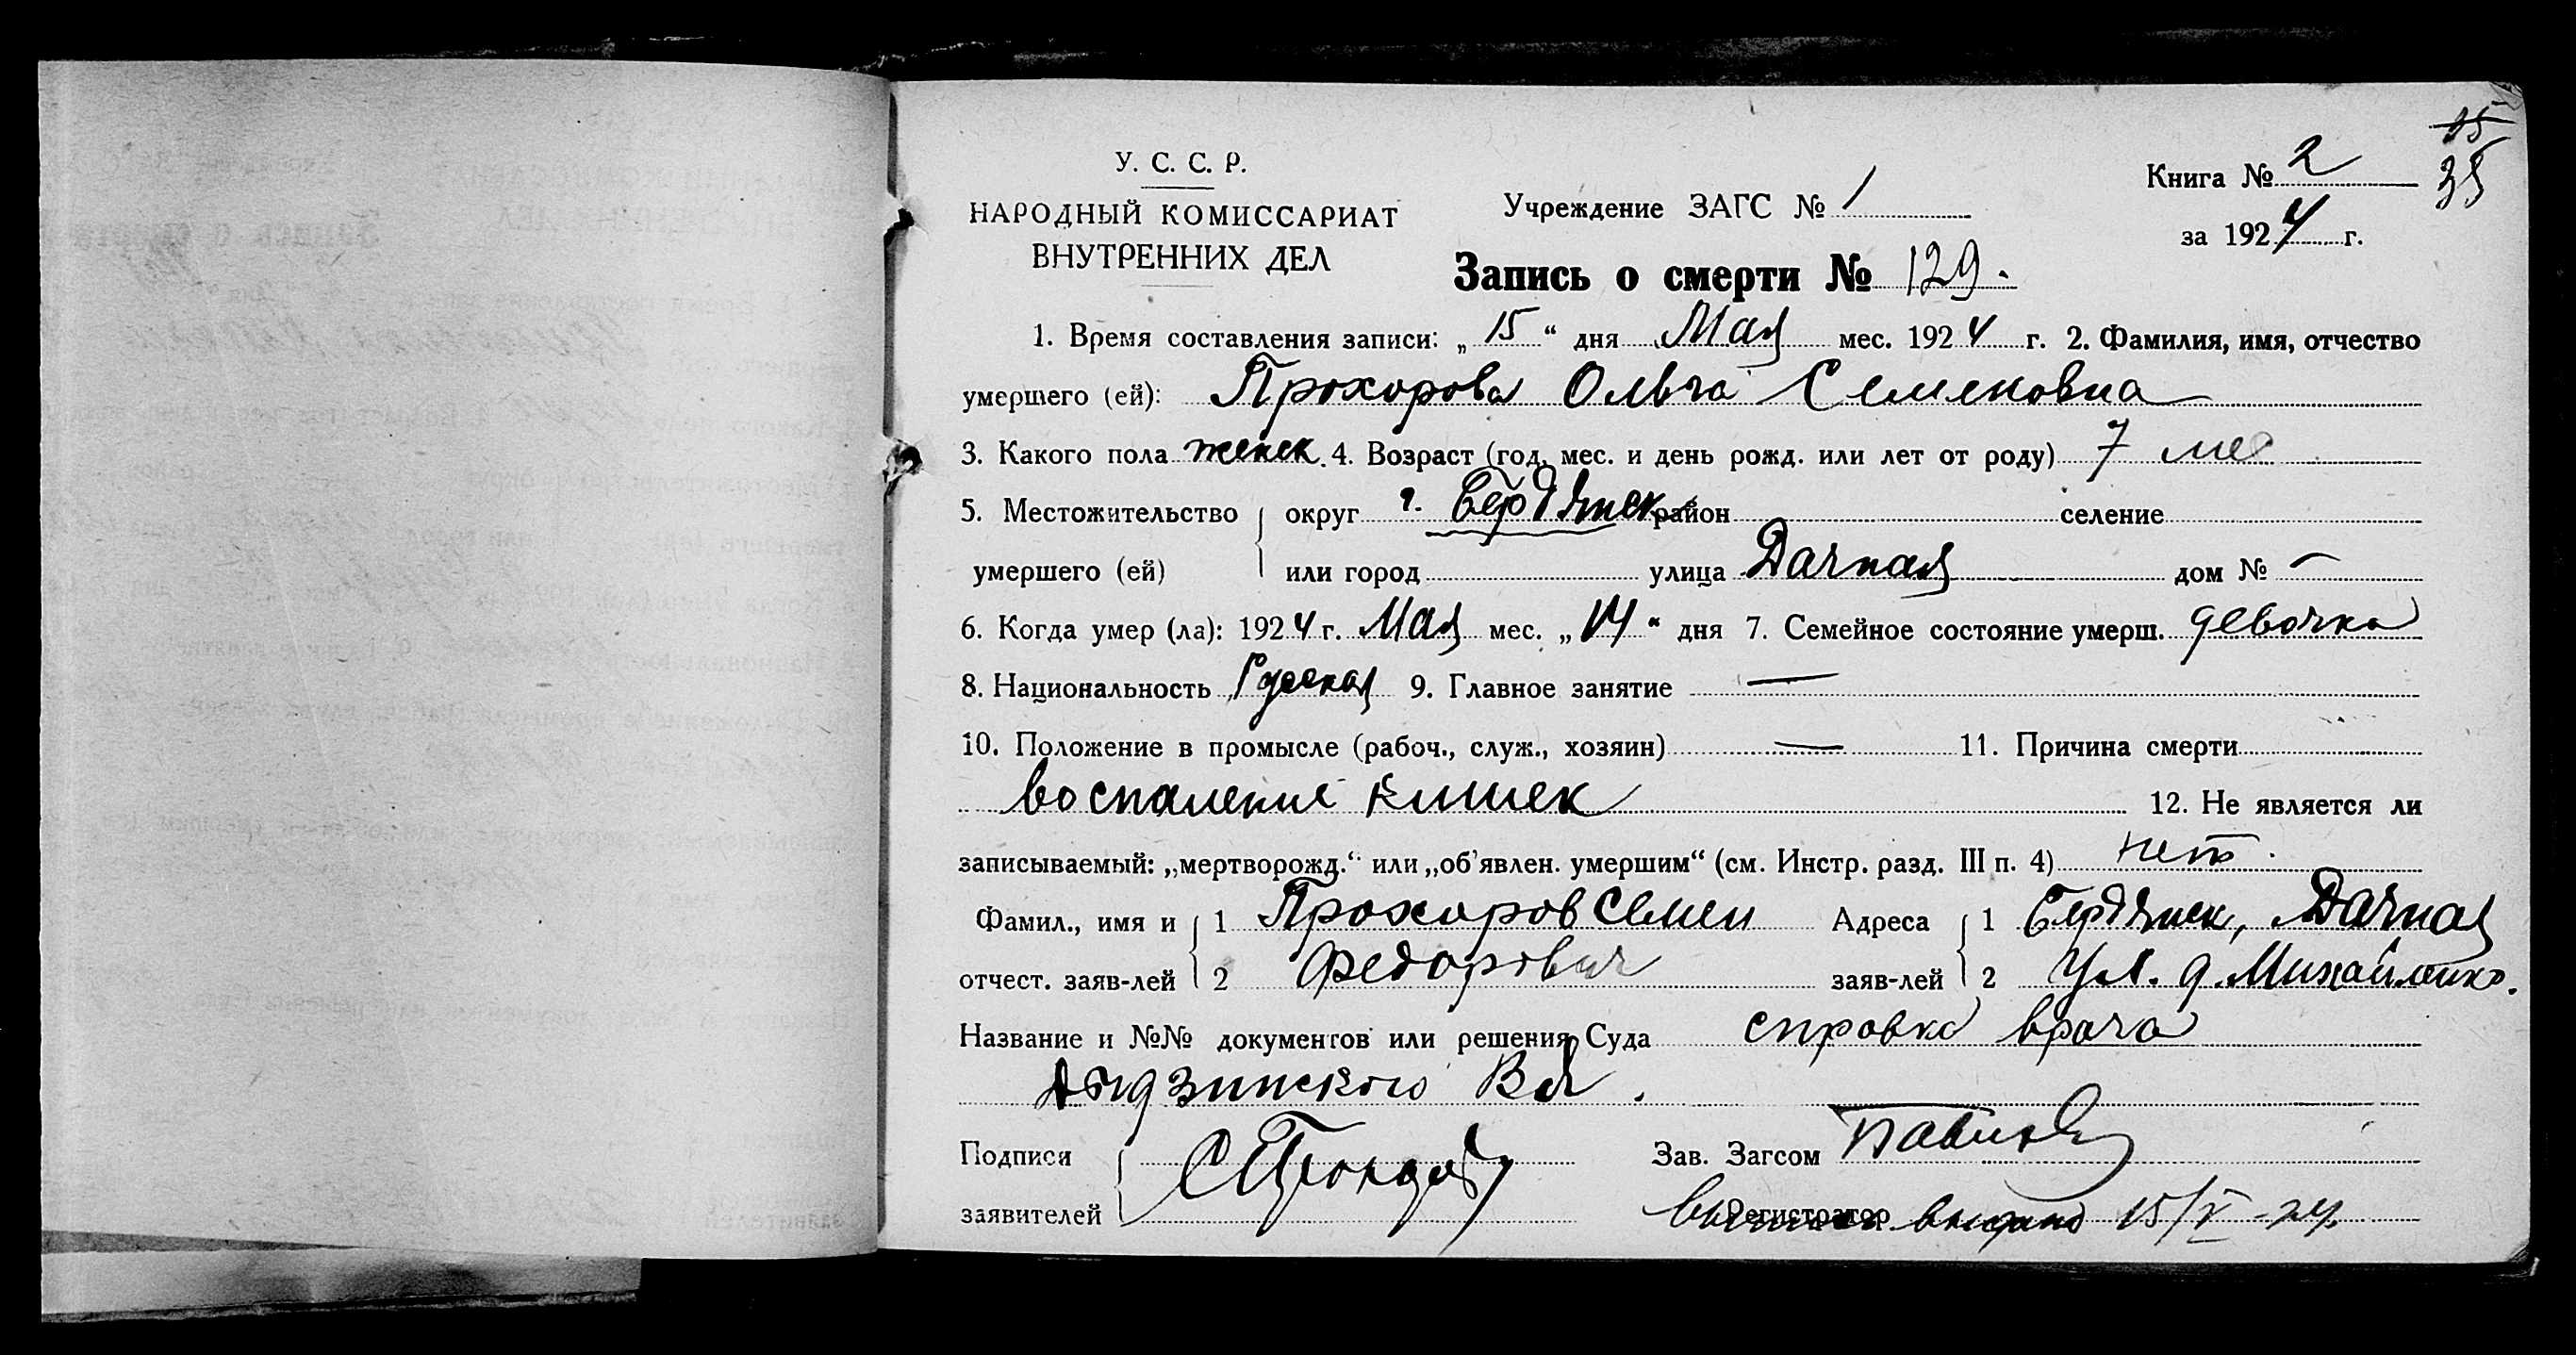 15
35
У. С. С. Р.
НАРОДНЫЙ КОМИССАРИАТ
ВНУТРЕННИХ ДЕЛ
Учреждение ЗАГС № 1
Книга № 2
за 1924 г.
Запись о смерти № 129.
1. Время составления записи: „ 15 “ дня Мая мес. 1924 г. 2. Фамилия, имя, отчество
умершего (ей): Прохорова Ольга Семеновна
3. Какого пола женск. 4. Возраст (год, мес. и день рожд. или лет от роду) 7 мес
5. Местожительство округ г. Бердянск район селение
умершего (ей) или город улица Дачная дом № —
6. Когда умер (ла): 1924 г. Мая мес. „ 14 “ дня 7. Семейное состояние умерш. девочка
8. Национальность Русская 9. Главное занятие —
10. Положение в промысле (рабоч., служ., хозяин) — 11. Причина смерти
воспаление кишек 12. Не является ли
записываемый: „мертворожд.“ или „об'явлен. умершим“ (см. Инстр. разд. III п. 4) нет.
Фамил., имя и 1 Прохоров Семен Адреса 1 Бердянск, Дачная
отчест. заяв-лей 2 Федорович заяв-лей 2 ул. д. Михайленко.
Название и №№ документов или решения Суда справка врача
Подписи Зав. Загсом
заявителей Регистратор выдана 15/V-24.